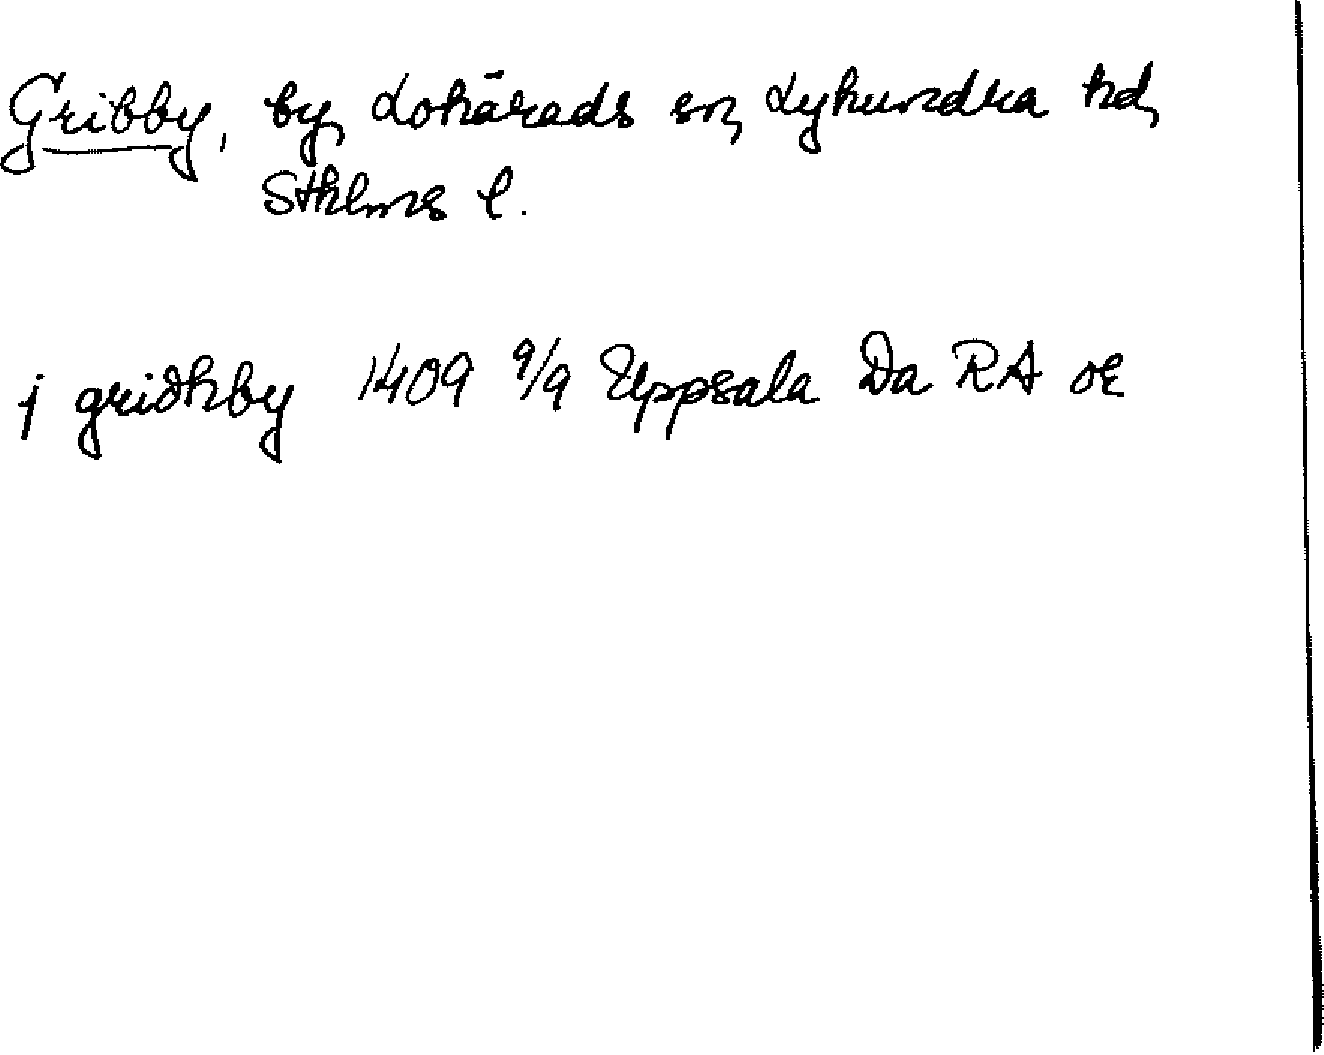 Gribby, by, Lohärads sn, Lyhundra hd,
Sthlms l.
j gridhby 1409 9/9 Uppsala Da RA or